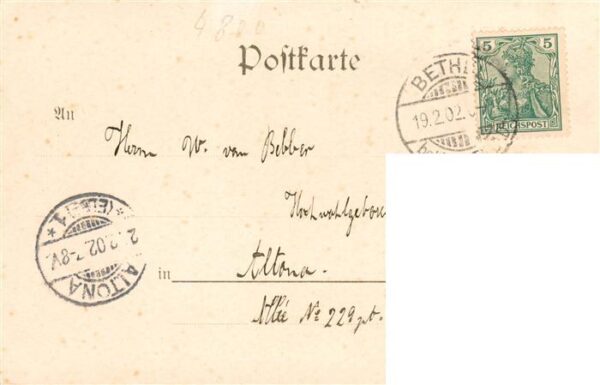 4800
Postkarte
5 5
REICHSPOST
BETHEL
19.2.02.
An
Herrn W. van Bebber
Hochwohlgeboren
in Altona.
Allée No 229 pt.
* (ELBE) 1 *
2.02. 7-8V.
ALTONA